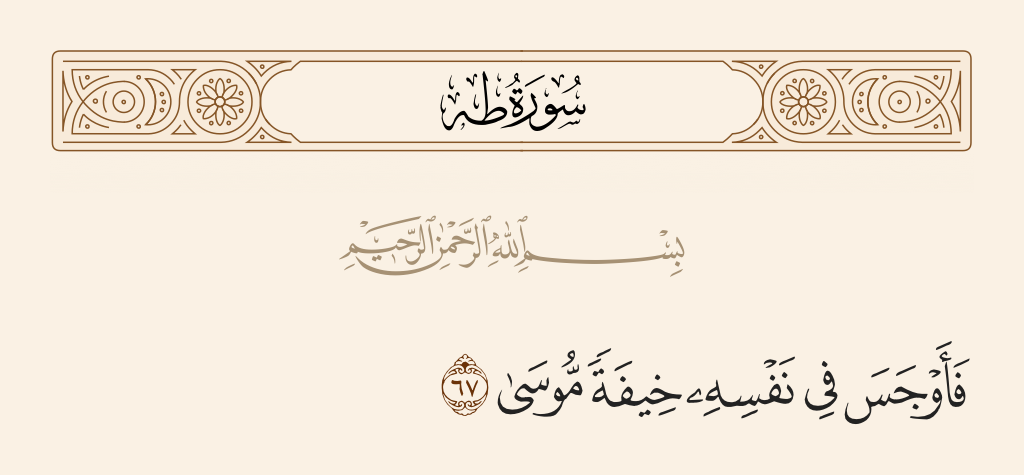 سُورَةُ طه
بِسْمِ ٱللَّهِ ٱلرَّحْمَٰنِ ٱلرَّحِيمِ
فَأَوْجَسَ فِى نَفْسِهِۦ خِيفَةً مُّوسَىٰ ٦٧